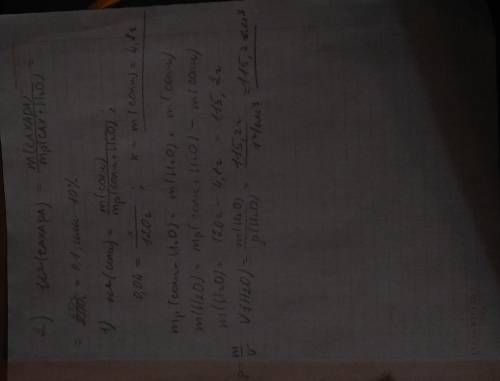 2) ω(сахара) = m(сахара) / mр(сах+H₂O) =
= = 0,1 или 10%
1) ω(соли) = m(соли) / mр(соли+H₂O) ;
0,04 = x / 120г ; x = m(соли) = 4,8г
mр(соли+H₂O) = m(H₂O) + m(соли)
m(H₂O) = mр(соли+H₂O) - m(соли)
m(H₂O) = 120г - 4,8г = 115,2г
V(H₂O) = m(H₂O) / ρ(H₂O) = 115,2г / 1г/см³ = 115,2 см³